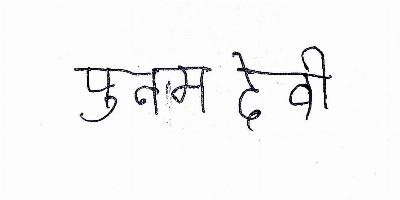 पुनाम देवी